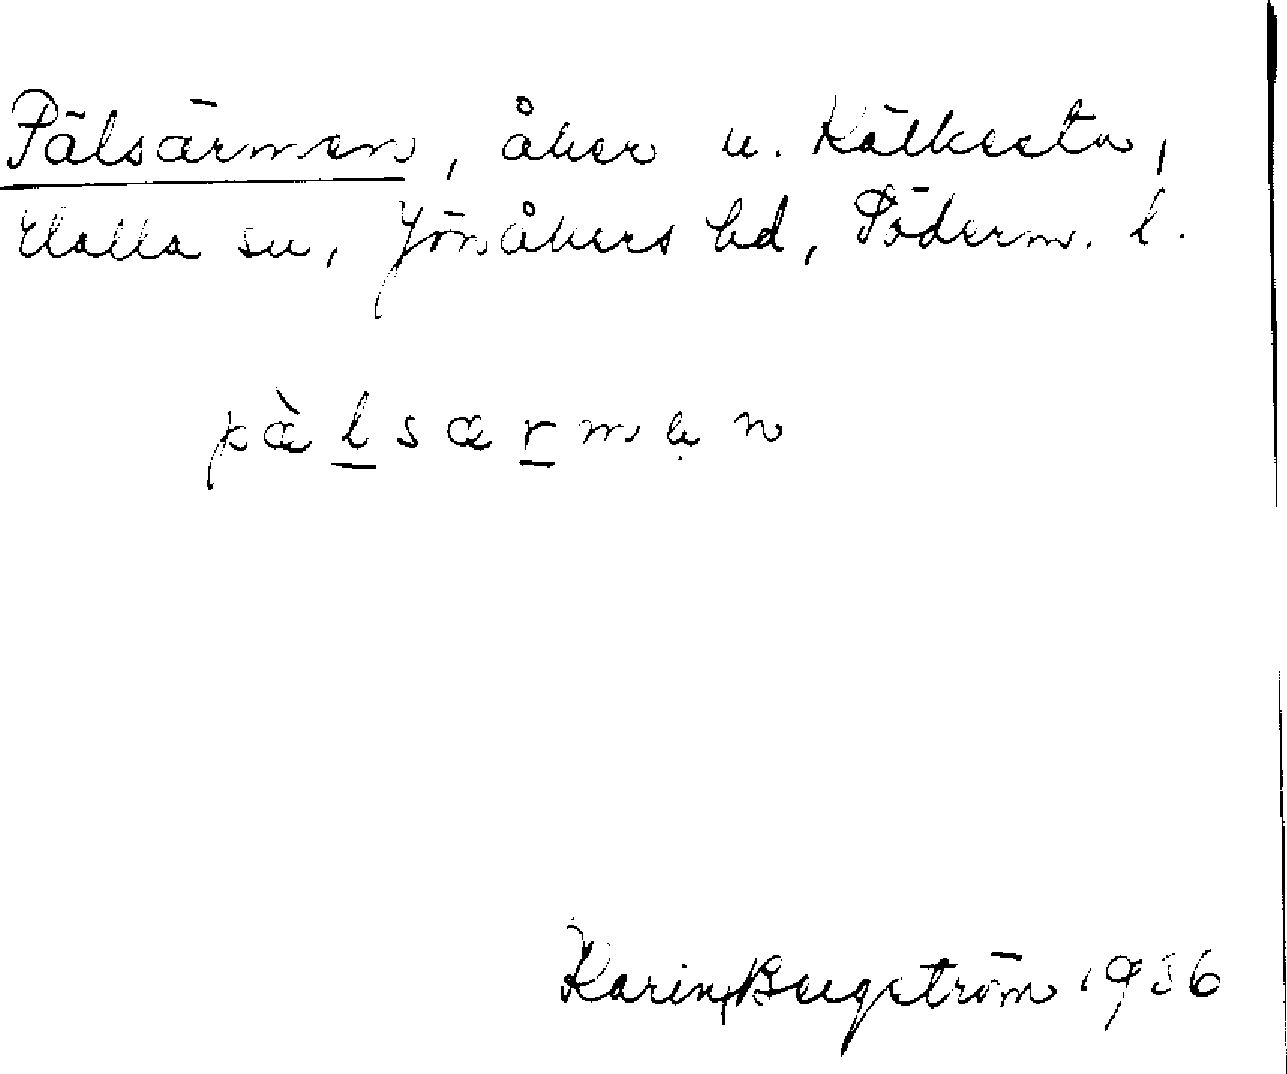 Pälsärmen, åker u. Kälkesta,
Halla sn, Jönåkers hd, Söderm. l.
pæ̀lsærmen
Karin Bergström 1936